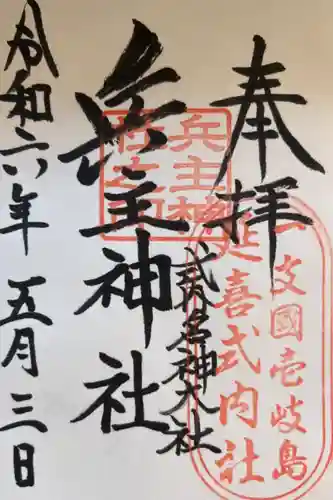 奉拝
一支國壱岐島
延喜式内社
兵主神社之印
兵主神社
式内名神大社
令和六年 五月 三日